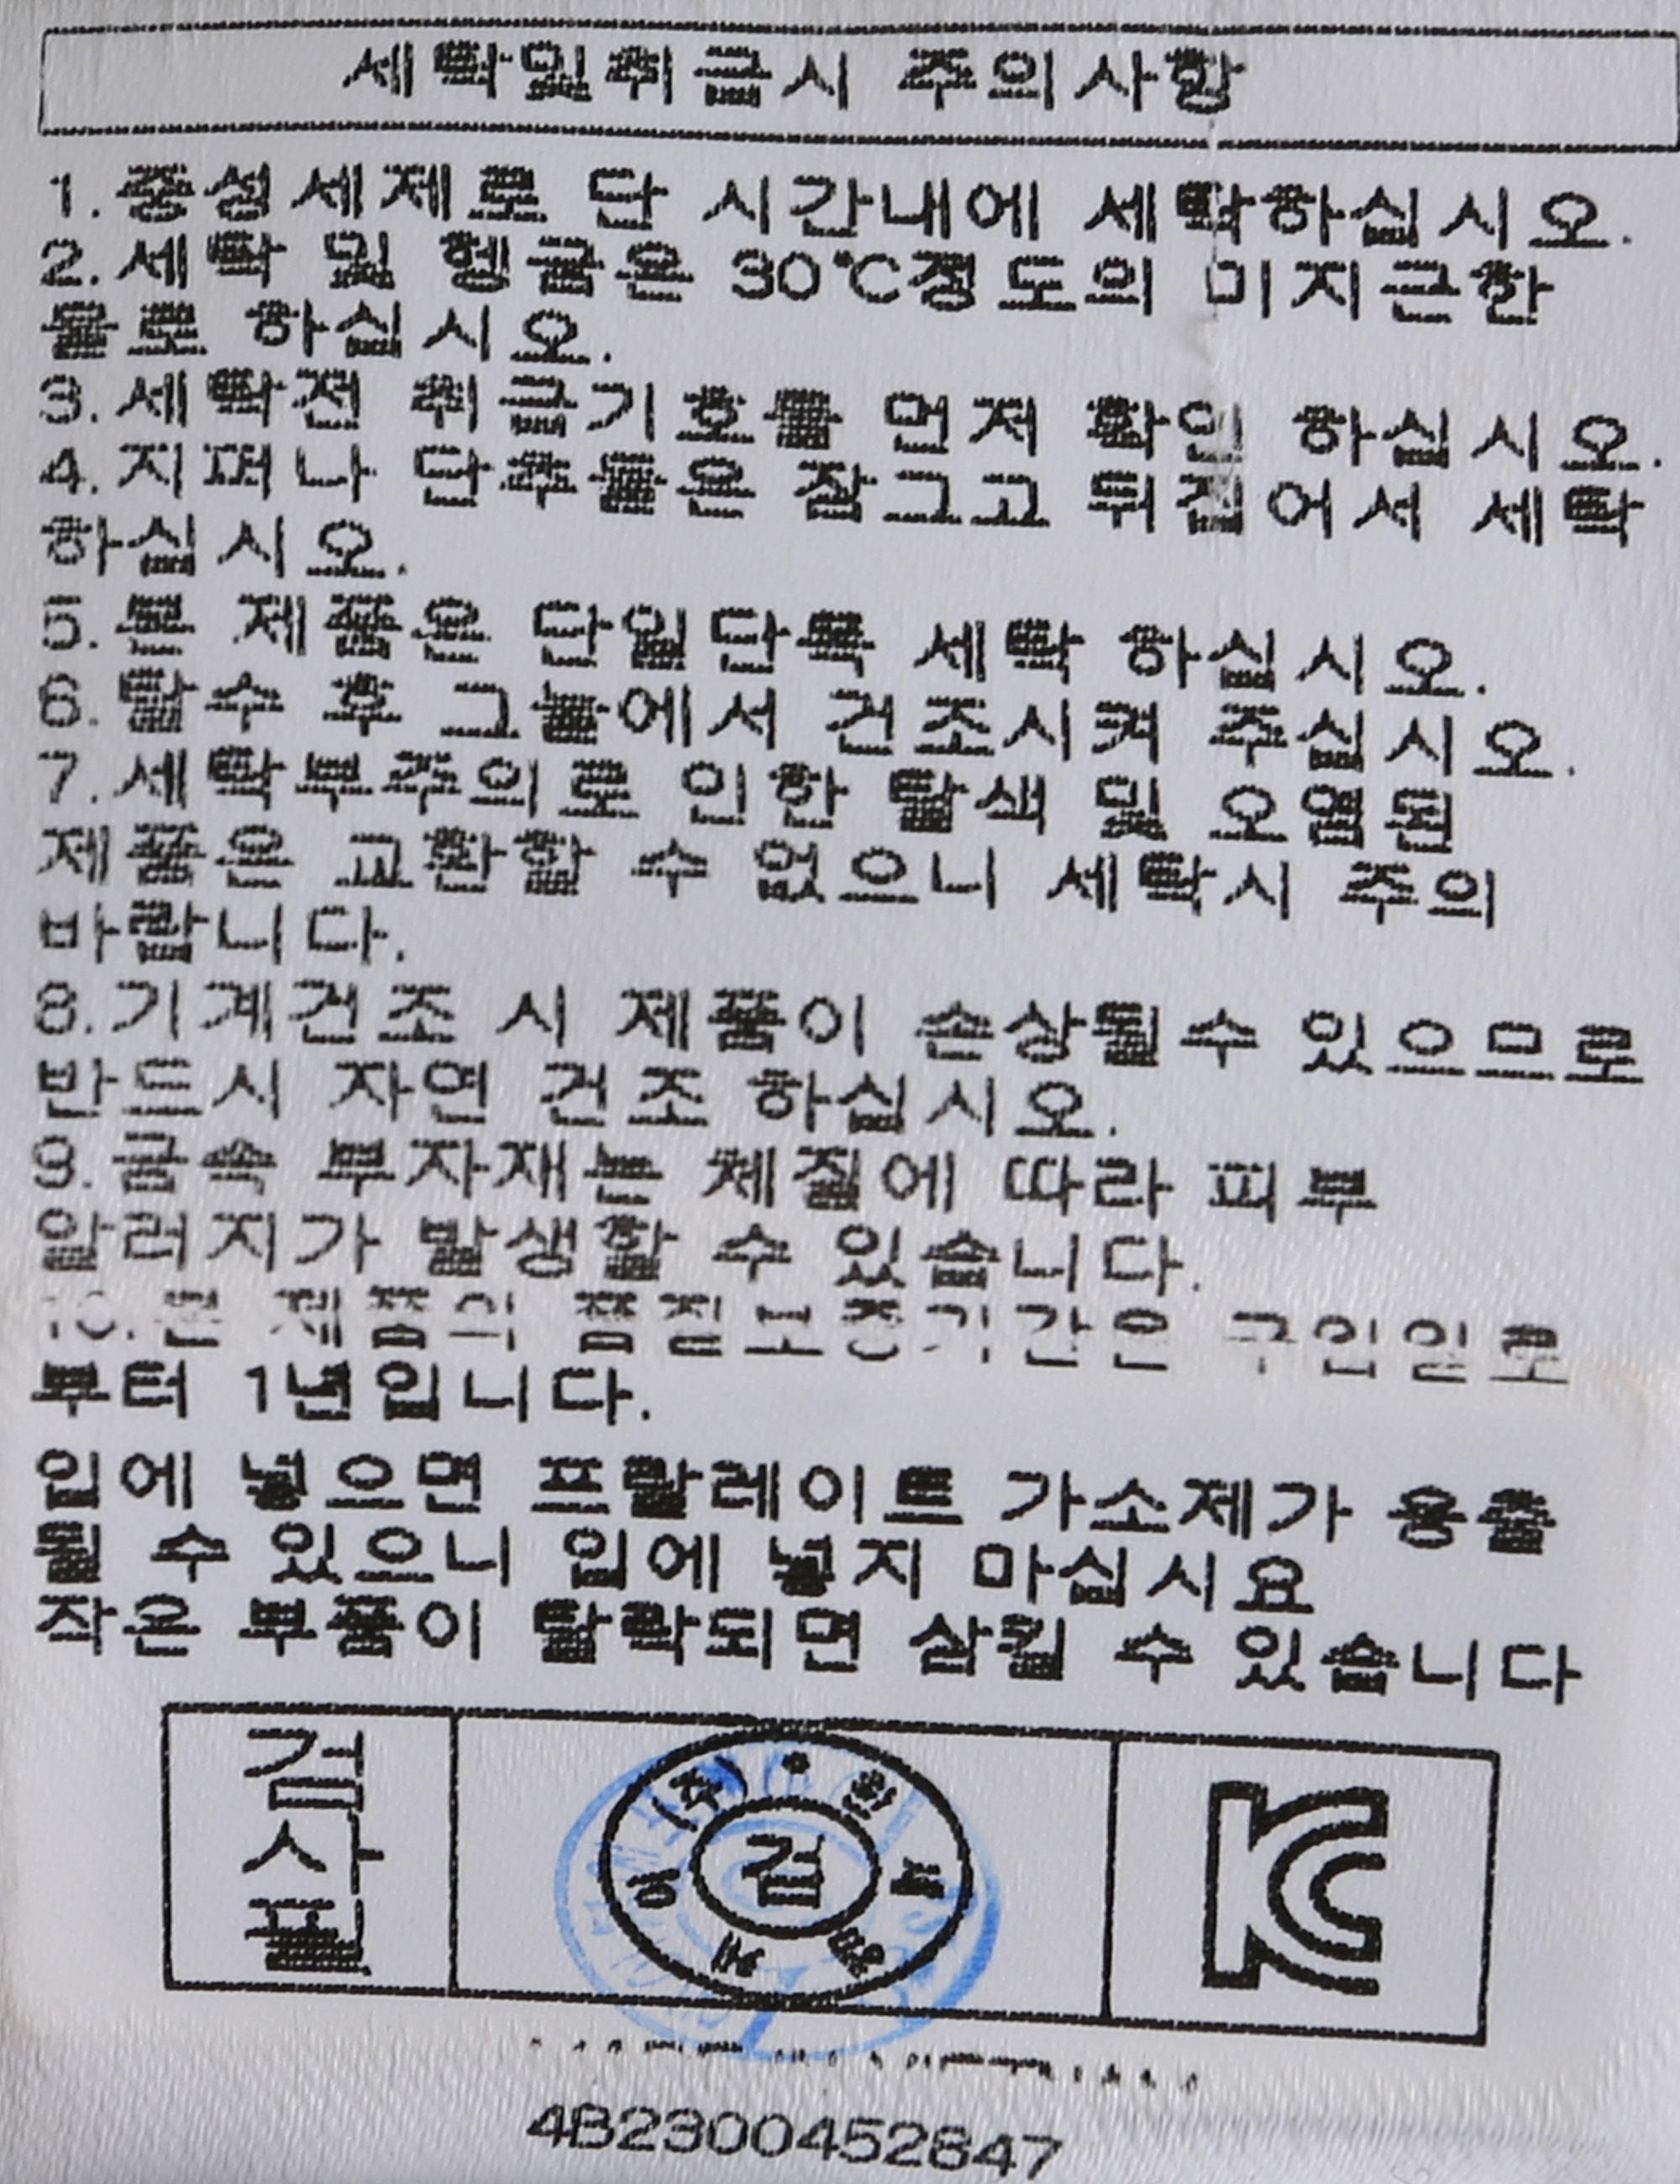 세탁및취급시 주의사항
1.중성세제로 단 시간내에 세탁하십시오.
2.세탁 및 헹굼은 30℃정도의 미지근한
물로 하십시오.
3.세탁전 취급기호를 먼저 확인 하십시오.
4.지퍼나 단추들은 잠그고 뒤집어서 세탁
하십시오.
5.본 제품은 단일단독 세탁 하십시오.
6.탈수 후 그늘에서 건조시켜 주십시오.
7.세탁부주의로 인한 탈색 및 오염된
제품은 교환할 수 없으니 세탁시 주의
바랍니다.
8.기계건조 시 제품이 손상될수 있으므로
반드시 자연 건조 하십시오.
9.금속 부자재는 체질에 따라 피부
알러지가 발생할 수 있습니다.
10.본 제품의 품질보증기간은 구입일로
부터 1년입니다.
입에 넣으면 프탈레이트 가소제가 용출
될 수 있으니 입에 넣지 마십시요
작은 부품이 탈락되면 삼킬 수 있습니다
검사필
검
KC
4B2300452847